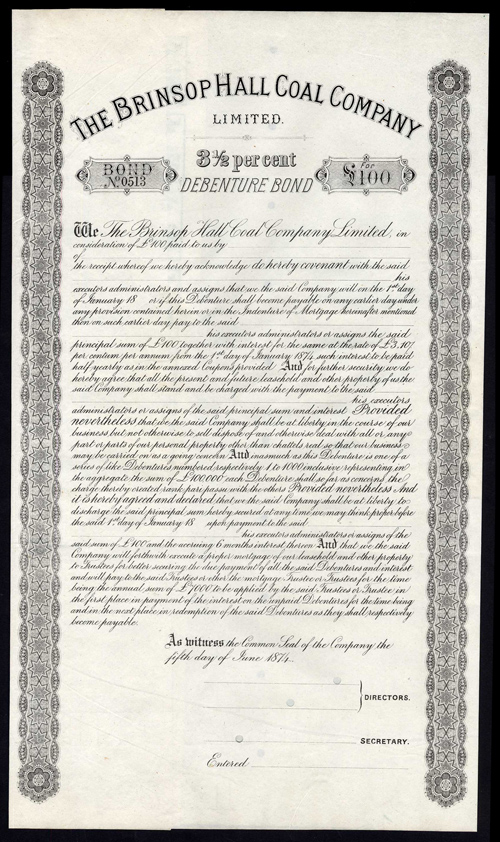 THE BRINSOP HALL COAL COMPANY
LIMITED.
3½ per cent
BOND
No 0513
DEBENTURE BOND
for
£100
We The Brinsop Hall Coal Company, Limited, in
consideration of £100 paid to us by
of
the receipt whereof we hereby acknowledge do hereby covenant with the said
his
executors administrators and assigns that we the said Company will on the 1st day
of January 18 or if this Debenture shall become payable on any earlier day under
any provision contained herein or in the Indenture of Mortgage hereinafter mentioned
then on such earlier day pay to the said
his executors administrators or assigns the said
principal sum of £100 together with interest for the same at the rate of £3.10/
per centum per annum from the 1st day of January 1874 such interest to be paid
half yearly as in the annexed Coupons provided And for further security we do
hereby agree that all the present and future leasehold and other property of us the
said Company shall stand and be charged with the payment to the said
his executors
administrators or assigns of the said principal sum and interest Provided
nevertheless that we the said Company shall be at liberty in the course of our
business but not otherwise to sell dispose of and otherwise deal with all or any
part or parts of our personal property other than chattels real so that our business
may be carried on as a going concern And inasmuch as this Debenture is one of a
series of like Debentures numbered respectively 1 to 1000 inclusive representing in
the aggregate the sum of £100,000 each Debenture shall so far as concerns the
charge thereby created rank pari passu with the others Provided nevertheless And
it is hereby agreed and declared that we the said Company shall be at liberty to
discharge the said principal sum hereby secured at any time we may think proper before
the said 1st day of January 18 upon payment to the said
his executors administrators or assigns of the
said sum of £100 and the accruing 6 months interest thereon And that we the said
Company will forthwith execute a proper mortgage of our leasehold and other property
to Trustees for better securing the due payment of all the said Debentures and interest
and will pay to the said Trustees or other the mortgage Trustee or Trustees for the time
being the annual sum of £7000 to be applied by the said Trustees or Trustee in
the first place in payment of the interest on the unpaid Debentures for the time being
and in the next place in redemption of the said Debentures as they shall respectively
become payable.
As witness the Common Seal of the Company, the
fifth day of June 1874.
DIRECTORS.
SECRETARY.
Entered